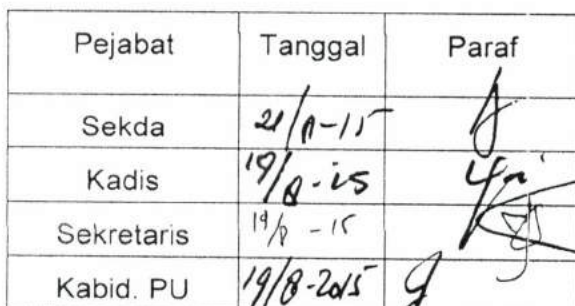 Pejabat Tanggal Paraf
Sekda 21/8-15
Kadis 19/8-15
Sekretaris 19/8 - 15
Kabid. PU 19/8-2015